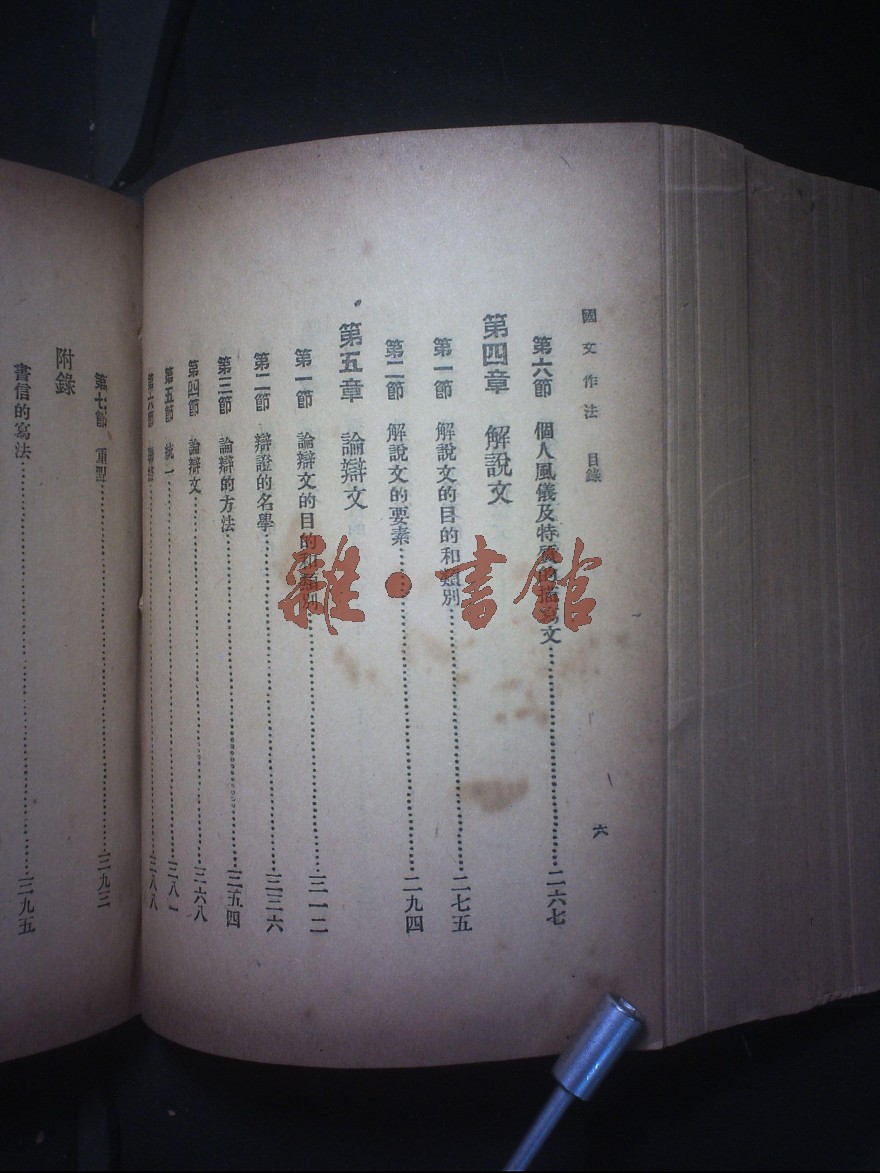 國文作法 目錄 六
第六節 個人風儀及特質的描寫文 二六七
第四章 解說文
第一節 解說文的目的和類別 二七五
第二節 解說文的要素 二九四
第五章 論辯文
第一節 論辯文的目的和類別 三一二
第二節 辯證的名學 三三六
第三節 論辯的方法 三五四
第四節 論辯文 三六八
第五節 統一 三八一
第六節 三八八
第七節 重 三九三
附錄
書信的寫法 三九五
雜·書館